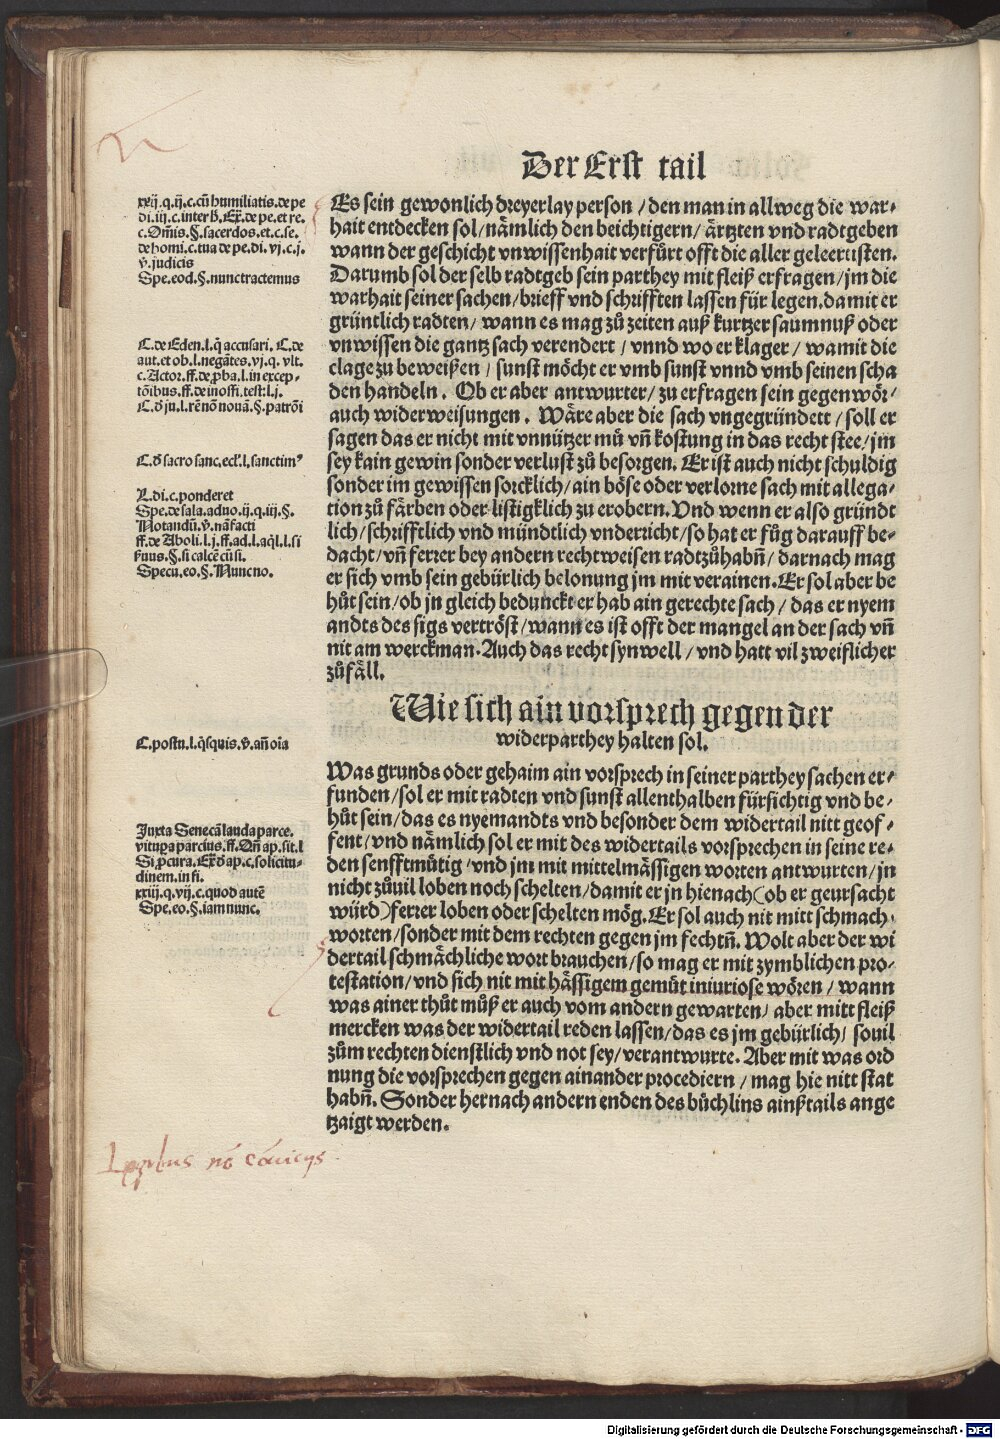 Der Erst tail
Es sein gewonlich dreyerlay person / den man in allweg die war-
hait entdecken sol / nämlich den beichtigern / ärtzten vnd radtgeben
wann der geschicht vnwissenhait verfürt offt die aller geleertisten.
Darumb sol der selb radtgeb sein parthey mit fleiß erfragen / jm die
warhait seiner sachen / brieff vnd schrifften lassen für legen. damit er
gründtlich radten / wann es mag zů zeiten auß kurtzer saumnuß oder
vnwissen die gantz sach verendert / vnnd wo er klager / wamit die
clage zu beweißen / sunst möcht er vmb sunst vnnd vmb seinen scha
den handeln. Ob er aber antwurter / zu erfragen sein gegenwör /
auch widerweisungen. Wäre aber die sach vngegründett / soll er
sagen das er nicht mit vnnützer mü vñ kostung in das recht stee / jm
sey kain gewin sonder verlust zů besorgen. Er ist auch nicht schuldig
sonder im gewissen sorcklich / ain böse oder verlorne sach mit allega-
tion zů färben oder listigklich zu erobern. Vnd wenn er also gründt
lich / schrifftlich vnd mündtlich vnderricht / so hat er fůg darauff be-
dacht / vñ ferrer bey andern rechtweisen radtzůhabñ / darnach mag
er sich vmb sein gebürlich belonung jm mit verainen. Er sol aber be
hůt sein / ob jn gleich bedunckt er hab ain gerechte sach / das er nyem
andts des sigs vertröst / wann es ist offt der mangel an der sach vñ
nit am werckman. Auch das recht synwell / vnd hatt vil zweiflicher
zůfäll.
Wie sich ain vorsprech gegen der
widerparthey halten sol.
Was grunds oder gehaim ain vorsprech in seiner parthey sachen er-
funden / sol er mit radten vnd sunst allenthalben fürsichtig vnd be-
hůt sein / das es nyemandts vnd besonder dem widertail nitt geof-
fent / vnd nämlich sol er mit des widertails vorsprechen in seine re-
den senfftmütig / vnd jm mit mittelmässigen worten antwurten / jn
nicht zůuil loben noch schelten / damit er jn hienach (ob er geursacht
würd) ferrer loben oder schelten mög. Er sol auch nit mitt schmach
worten / sonder mit dem rechten gegen jm fechtñ. Wolt aber der wi
dertail schmächliche wort brauchen / so mag er mit zymblichen pro-
testation / vnd sich nit mit hässigem gemüt iniuriose wören / wann
was ainer thůt můß er auch vom andern gewarten / aber mitt fleiß
mercken was der widertail reden lassen / das es jm gebürlich / souil
zům rechten dienstlich vnd not sey / verantwurte. Aber mit was ord
nung die vorsprechen gegen ainander procediern / mag hie nitt stat
habñ. Sonder hernach andern enden des bůchlins ainßtails ange
tzaigt werden.
xxij.q.ij.c.cũ humiliatis.de pe
di.iij.c.inter
c.Oms.§.sacerdos.et.c.se.
de homi.c.tua de pe.di.vj.c.j.
v.judicis
Spe.eod.§.nunc tractemus
C.de Eden.l.q̃ accusari. C.de
aut.et ob.l.negãtes.vj.q. vlt.
c.Actor.ff.de p̱ba.l.in excep-
tõibus.ff.de inoffi.test.l.j.
C.đ ju.l.rẽ nõ nouã.§.patrõi
C.đ sacrosanc.ecl'.l.sanctim⁹
L.di.c.ponderet
Spe.de sala.aduo.ij.q.iij.§.
Notandũ.v.nã facti
ff.de Aboli.l.j.ff.ad.l.aql̃.l.si
§.si calcẽ cũ si.
Specu.eo.§.Nunc no.
C.postu.l.q̃squis.v.añ oĩa
Juxta Senecã lauda parce.
vitupa parcius.ff.
Si p̱cura. c.solicitu-
dinem.in fi.
xxiij.q.vij.c.quod autẽ
Spe.eo.§.iam nunc.
Digitalisierung gefördert durch die Deutsche Forschungsgemeinschaft - DFG